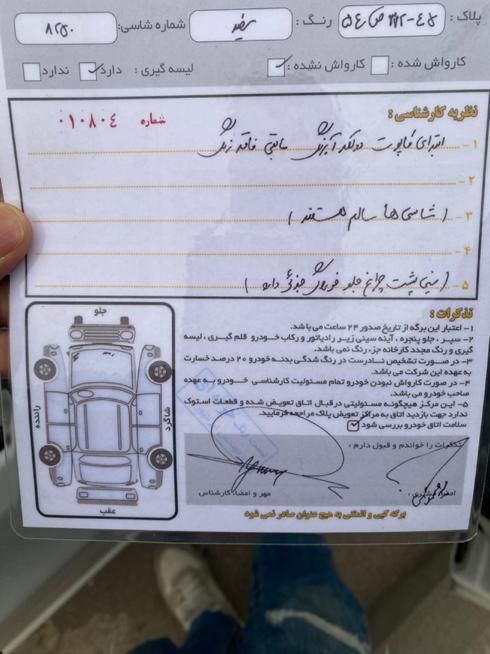 پلاک: ۴۵-۷۲۲ ص ۵۴ رنگ: سفید شماره شاسی: ۸۲۵۰
کارواش شده: کارواش نشده: لیسه گیری: دارد ندارد
نظریه کارشناسی: شماره ۰۱۰۸۰۴
۱- ابتدای کاپوت دو لکه آبرنگ مابقی فاقد رنگ
۲-
۳- (شاسی‌ها سالم هستند)
۴-
۵- (سینی پشت چراغ جلو فرورفتگی جزئی دارد)
تذکرات:
۱- اعتبار این برگه از تاریخ صدور ۲۴ ساعت می باشد.
۲- سپر، جلو پنجره، آینه سینی زیر رادیاتور و رکاب خودرو قلم گیری، لیسه
گیری و رنگ مجدد کارخانه جزء رنگ نمی باشد.
۳- در صورت تشخیص نادرست در رنگ شدگی بدنه خودرو ۲۰ درصد خسارت
به عهده این شرکت می باشد.
۴- در صورت کارواش نبودن خودرو تمام مسئولیت کارشناسی خودرو به عهده
صاحب خودرو می باشد.
۵- این مرکز هیچگونه مسئولیتی در قبال اتاق تعویض شده و قطعات استوک
ندارد جهت بازدید اتاق به مراکز تعویض پلاک مراجعه فرمایید.
سلامت اتاق خودرو بررسی شود
را خواندم و قبول دارم:
مهر و امضاء کارشناس
برگه کپی و المثنی به هیچ عنوان صادر نمی شود
جلو
راننده
شاگرد
عقب